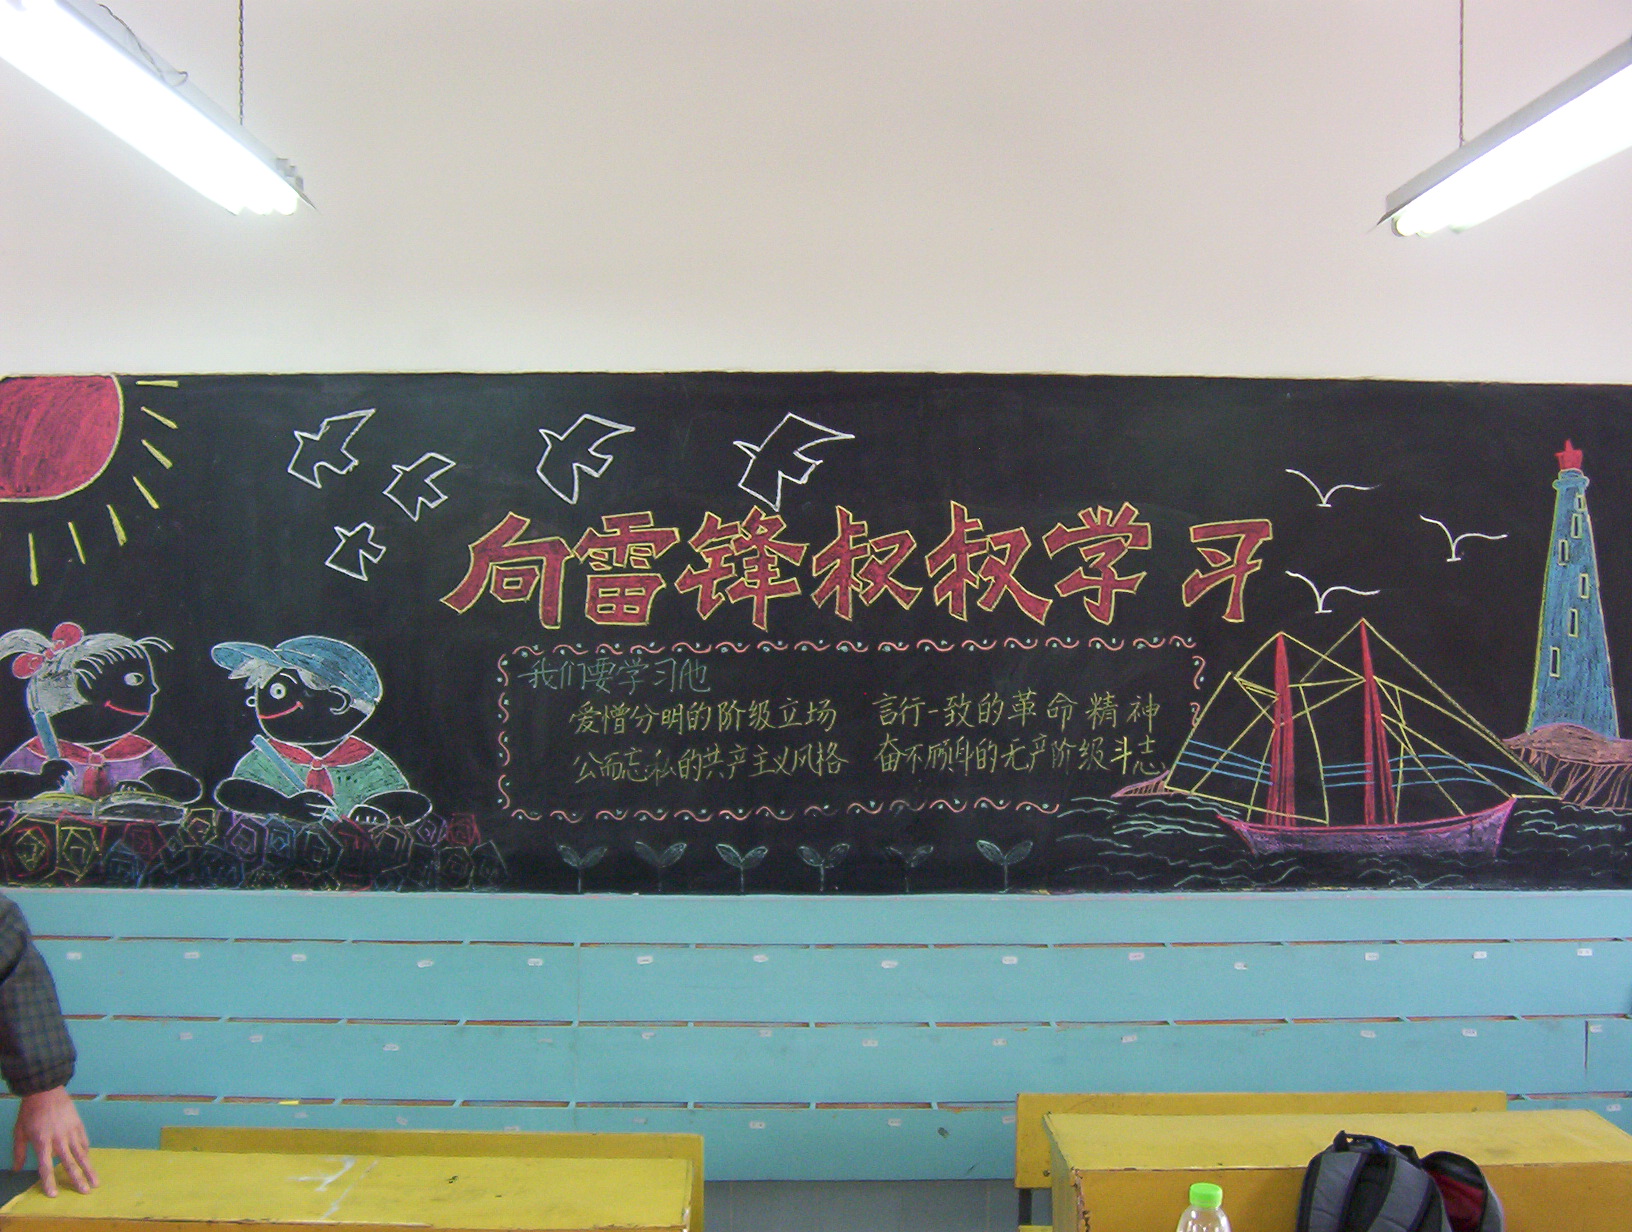 向雷锋叔叔学习
我们要学习他
爱憎分明的阶级立场 言行一致的革命精神
公而忘私的共产主义风格 奋不顾身的无产阶级斗志